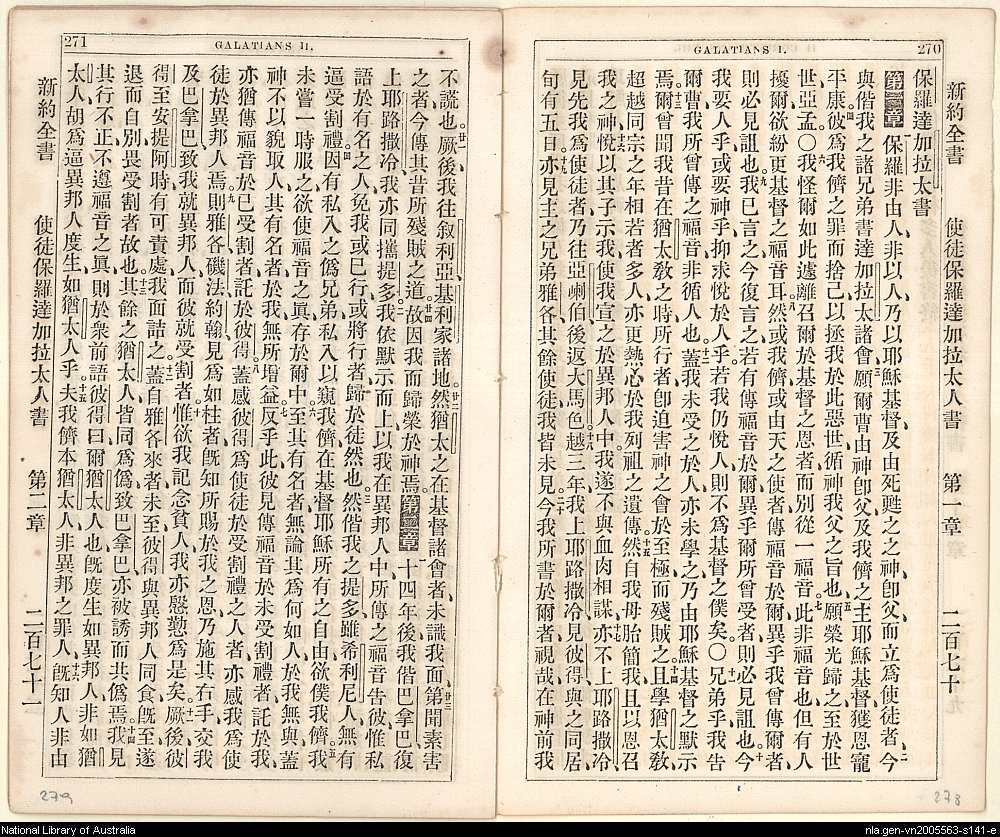 270
GALATIANS I.
新約全書 使徒保羅達加拉太人書 第一章 二百七十
保羅達加拉太書
第一章 一保羅非由人、非以人、乃以耶穌基督、及由死甦之之神卽父而立爲使徒者、二今
與偕我之諸兄弟書達加拉太諸會、三願爾曹由神卽父及我儕之主耶穌基督獲恩寵
平康、四彼爲我儕之罪而捨己以拯我於此惡世循神我父之旨也、五願榮光歸之至於世
世亞孟○六我怪爾如此遽離召爾於基督之恩者而別從一福音、七此非福音也但有人
擾爾欲紛更基督之福音耳、八然或我儕或由天之使者傳福音於爾異乎我曾傳爾者
則必見詛也、九我已言之今復言之若有傳福音於爾異乎爾所曾受者則必見詛也、十今
我要人乎或要神乎抑求悅於人乎若我仍悅人則不爲基督之僕矣○十一兄弟乎我告
爾曹我所曾傳之福音非循人也、十二蓋我未受之於人亦未學之乃由耶穌基督之默示
焉、十三爾曾聞我昔在猶太敎之時所行者卽迫害神之會於至極而殘賊之、十四且學猶太敎
超越同宗之年相若者多人亦更熱心於我列祖之遺傳、十五然自我母胎簡我且以恩召
我之神、十六悅以其子示我使我宣之於異邦人中我遂不與血肉相謀、十七亦不上耶路撒冷
見先我爲使徒者乃往亞喇伯後返大馬色、十八越三年我上耶路撒冷見彼得與之同居
旬有五日、十九亦見主之兄弟雅各其餘使徒我皆未見、二十今我所書於爾者視哉在神前我
278
271
GALATIANS II.
不謊也、廿一厥後我往叙利亞基利家諸地、廿二然猶太之在基督諸會者未識我面、廿三第聞素害
之者今傳其昔所殘賊之道、廿四故因我而歸榮於神焉 第二章 一十四年後我偕巴拿巴復
上耶路撒冷我亦同攜提多、二我依默示而上以我在異邦人中所傳之福音告彼惟私
語於有名之人免我或已行或將行者歸於徒然也、三然偕我之提多雖希利尼人無有
逼受割禮、四因有私入之僞兄弟私入以窺我儕在基督耶穌所有之自由欲僕我儕、五我
未嘗一時服之欲使福音之眞存於爾中、六至其有名者無論其爲何如人於我無與蓋
神不以貌取人其有名者於我無所增益、七反乎此彼見傳福音於未受割禮者託於我
亦猶傳福音於已受割者託於彼得、八蓋感彼得爲使徒於受割禮之人者亦感我爲使
徒於異邦人焉、九則雅各磯法約翰見爲如柱者旣知所賜於我之恩乃施其右手交我
及巴拿巴致我就異邦人而彼就受割者、十惟欲我記念貧人我亦慇懃爲是矣、十一厥後彼
得至安提阿時有可責處我面詰之、十二蓋自雅各來者未至彼得與異邦人同食旣至遂
退而自別畏受割者故也、十三其餘之猶太人皆同爲僞致巴拿巴亦被誘而共僞焉、十四我見
其行不正不遵福音之眞則於衆前語彼得曰爾猶太人也旣度生如異邦人非如猶
太人胡爲逼異邦人度生如猶太人乎、十五夫我儕本猶太人非異邦之罪人、十六旣知人非由
新約全書 使徒保羅達加拉太人書 第二章 二百七十一
279
National Library of Australia
nla.gen-vn2005563-s141-e